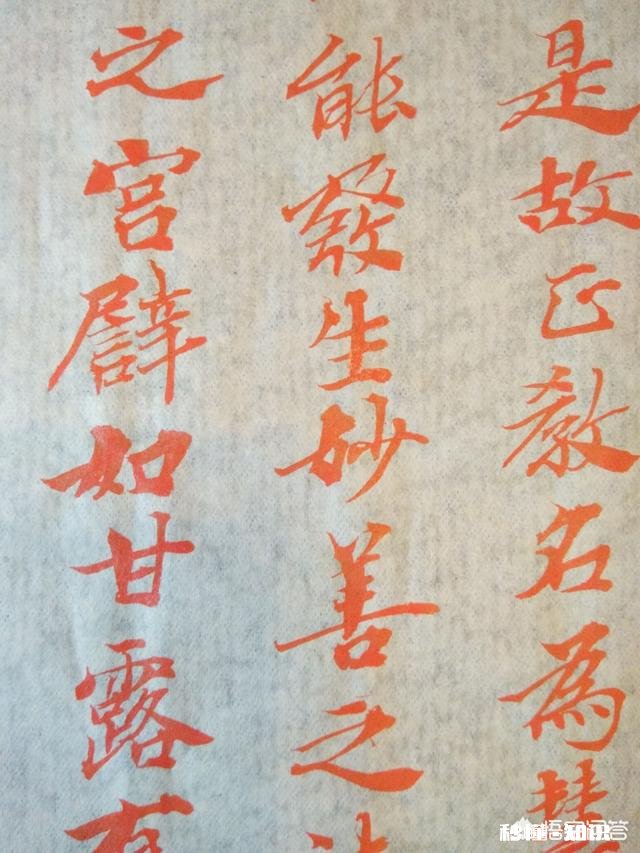 是故正教名為
能發生妙善之
之宮譬如甘露